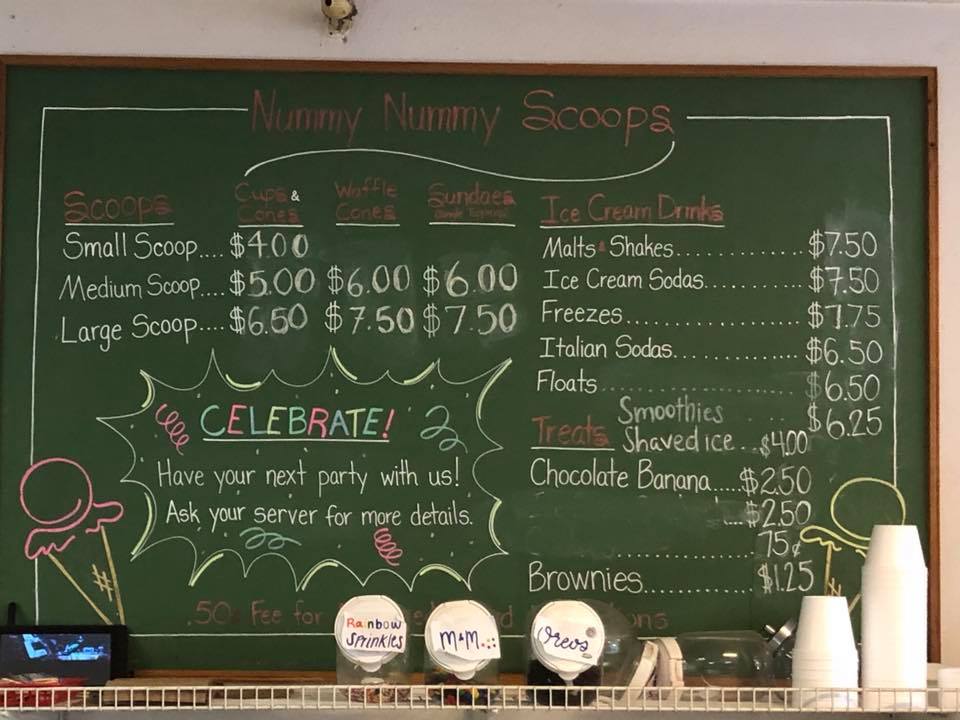 Nummy Nummy Scoops
Scoops Cups & Cones Waffle Cones Sundaes
Small Scoop.... $4.00
Medium Scoop.... $5.00 $6.00 $6.00
Large Scoop.... $6.50 $7.50 $7.50
CELEBRATE!
Have your next party with us!
Ask your server for more details.
Ice Cream Drinks
Malts & Shakes............ $7.50
Ice Cream Sodas........... $7.50
Freezes.................. $7.75
Italian Sodas.............. $6.50
Floats.................... $6.50
Smoothies ..... $6.25
Treats Shaved ice... $4.00
Chocolate Banana..... $2.50
.... $2.50
................ 75¢
Brownies........... $1.25
.50¢ Fee for
Rainbow
Sprinkles
M&M
Oreos